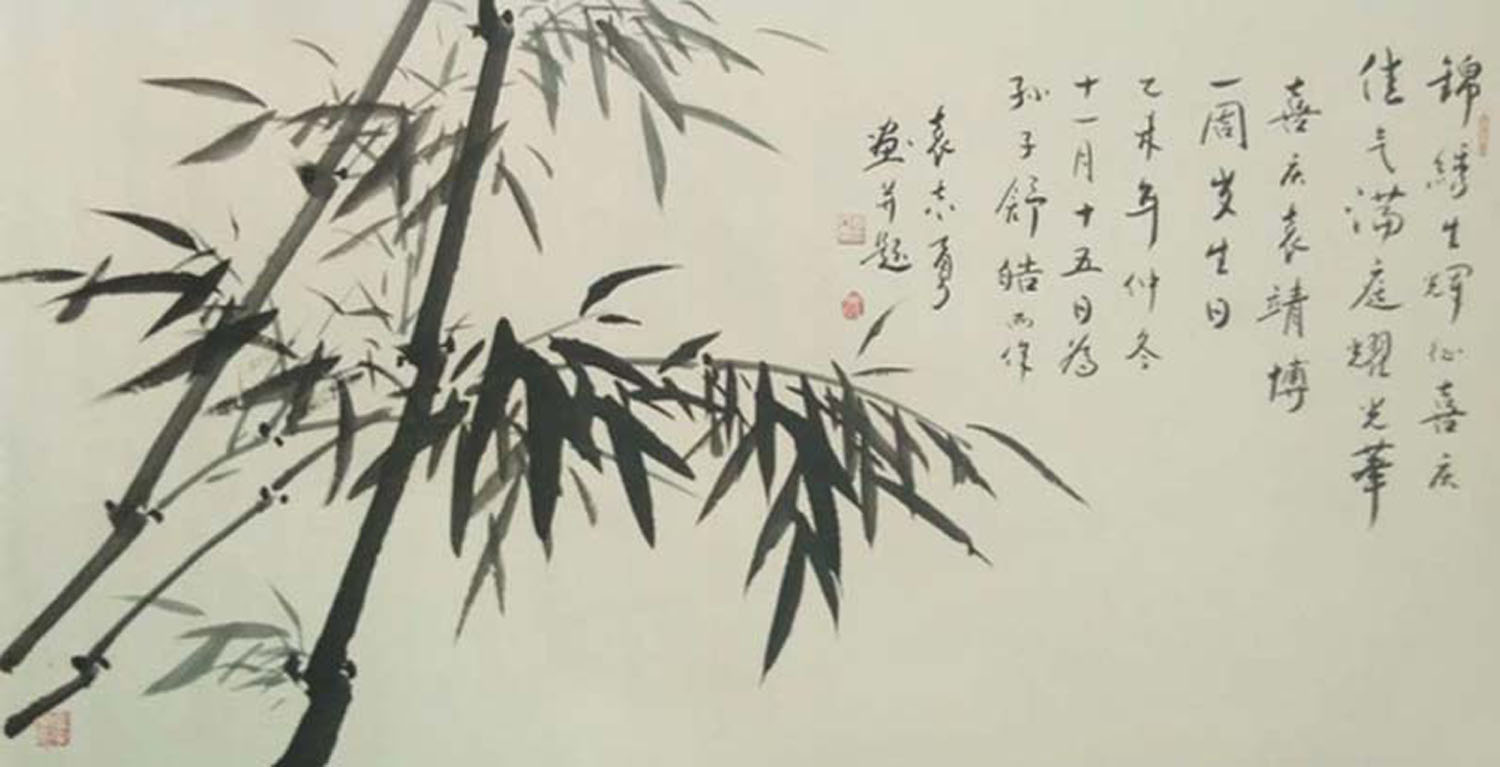 錦绣生輝征喜庆
佳气满庭耀光華
喜庆袁靖博
一周岁生日
乙未年仲冬
十一月十五日为
孙子舒皓而作
袁志勇
画并题